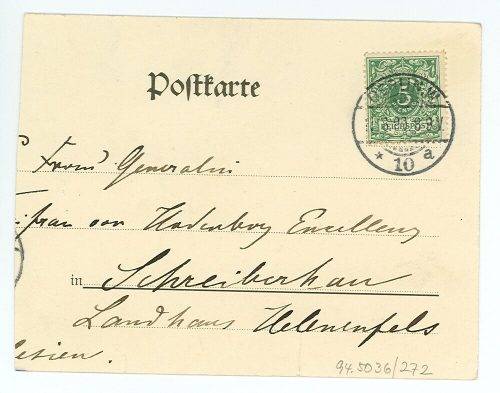 Postkarte
5
BERLIN W.
* 10 a
Frau Generalin
ifrau von Hodenberg Excellenz
in Schreiberhau
Landhaus Helenenfels
lesien.
94.5036/272